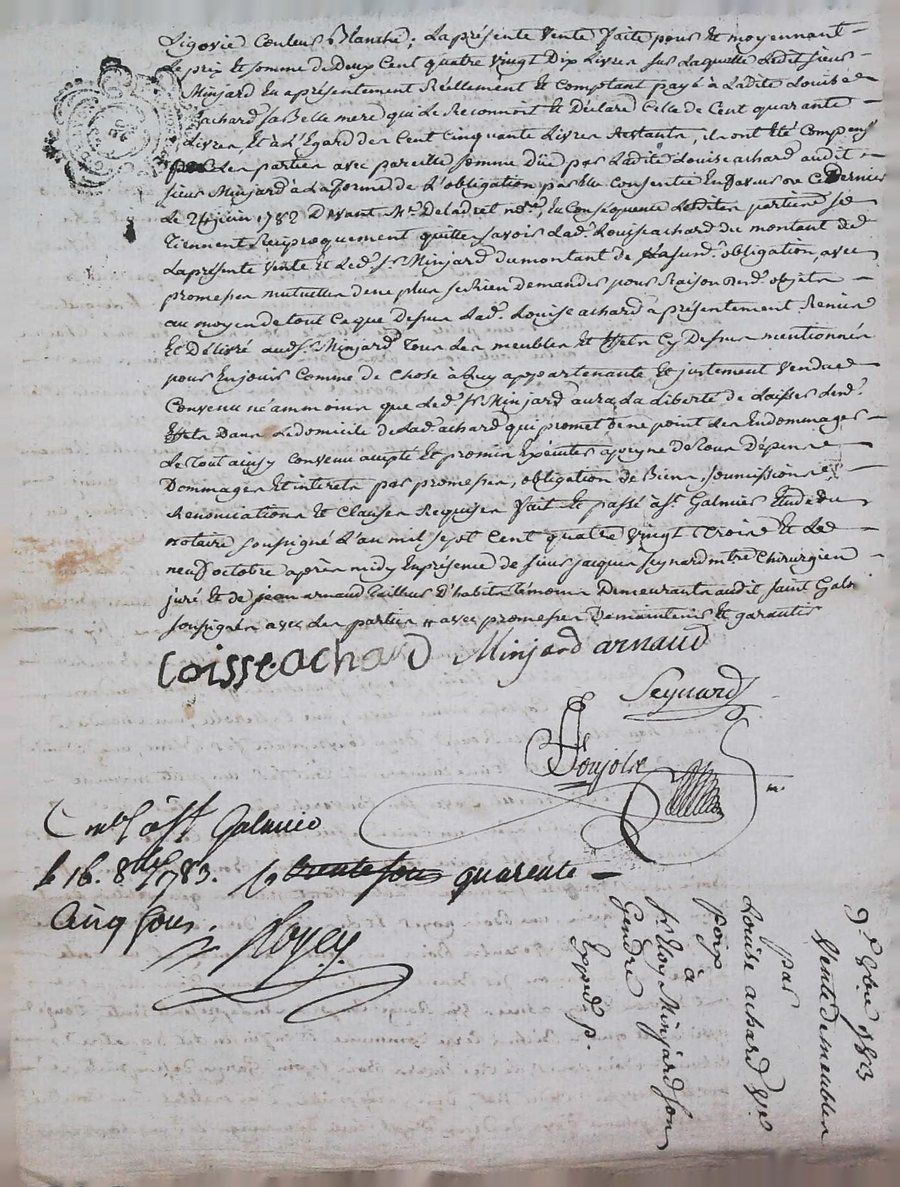 Ligovié Couleur Blanche; La présente Vente faite pour Et moyennant
Le prix Et somme de Deux Cent quatre Vingt Dix Livres sur Laquelle Ledit sieur
Minjard En a présentement Réellement Et Comptant payé à Ladite Louise
achard sa Belle mere qui Le Reconnoit Et Déclare Celle de Cent quarante
Livres, Et à L'Egard des Cent Cinquante Livres Restants, il ont Eté Compensé
par Les parties avec pareille somme Düe par Ladite Louise achard audit
sieur Minjard a La forme de L'obligation par Elle Consentie En faveur de Ce Dernier
Le 24 juin 1782 Devant Me Deladret nore, En Conséquence Lesdites parties se
Tiennent Reciproquement quittes savoir Lade. Louise achard du montant de
La présente Vente Et Led. sr. Minjard du montant de La susde. obligation, avec
promesses mutuelles de ne plus se Rien demander pour Raison desd. objets
au moyen de tout Ce que Dessus Lade. Louise achard a présentement Remis
Et Délivré aud. sr. Minjard Tous Les meubles Et Effets Cy Dessus mentionnés
pour En jouir Comme de Chose à Luy appartenante Et justement Vendue
Convenu néammoins que Led. sr Minjard aura La Liberté de Laisser Lesd.
Effets Dans Le domicile de Lad. achard qui promet de ne point Les Endommager
Le Tout ainsy convenu accepté Et promis Exécuter a peyne de Tous Dépens
Dommages Et interets par promesses, obligation de Biens, soumissions
Renonciations Et Clauses Requises fait Et passé à St. Galmier Etude du
notaire soussigné L'an mil sept Cent quatre Vingt Trois Et Le
neuf octobre après midy En présence de sieur jacques seynard mtre Chirurgien
juré Et de jean arnaud Tailleur D'habits Témoins Demeurants audit saint Galmr
soussignés avec Les parties avec promesses De maintenir Et garantir
Loisse achard Minjard arnaud
Seynard
Poujolx
Cntlé à St Galmier
le 16. 8bre 1783. quarente
Cinq sous.
Royey
9e 8bre 1783
Vente de meubles
par
Louise achard Ve
Poix
à
Sr. Eloy Minjard son
Gendre
Expd. p.